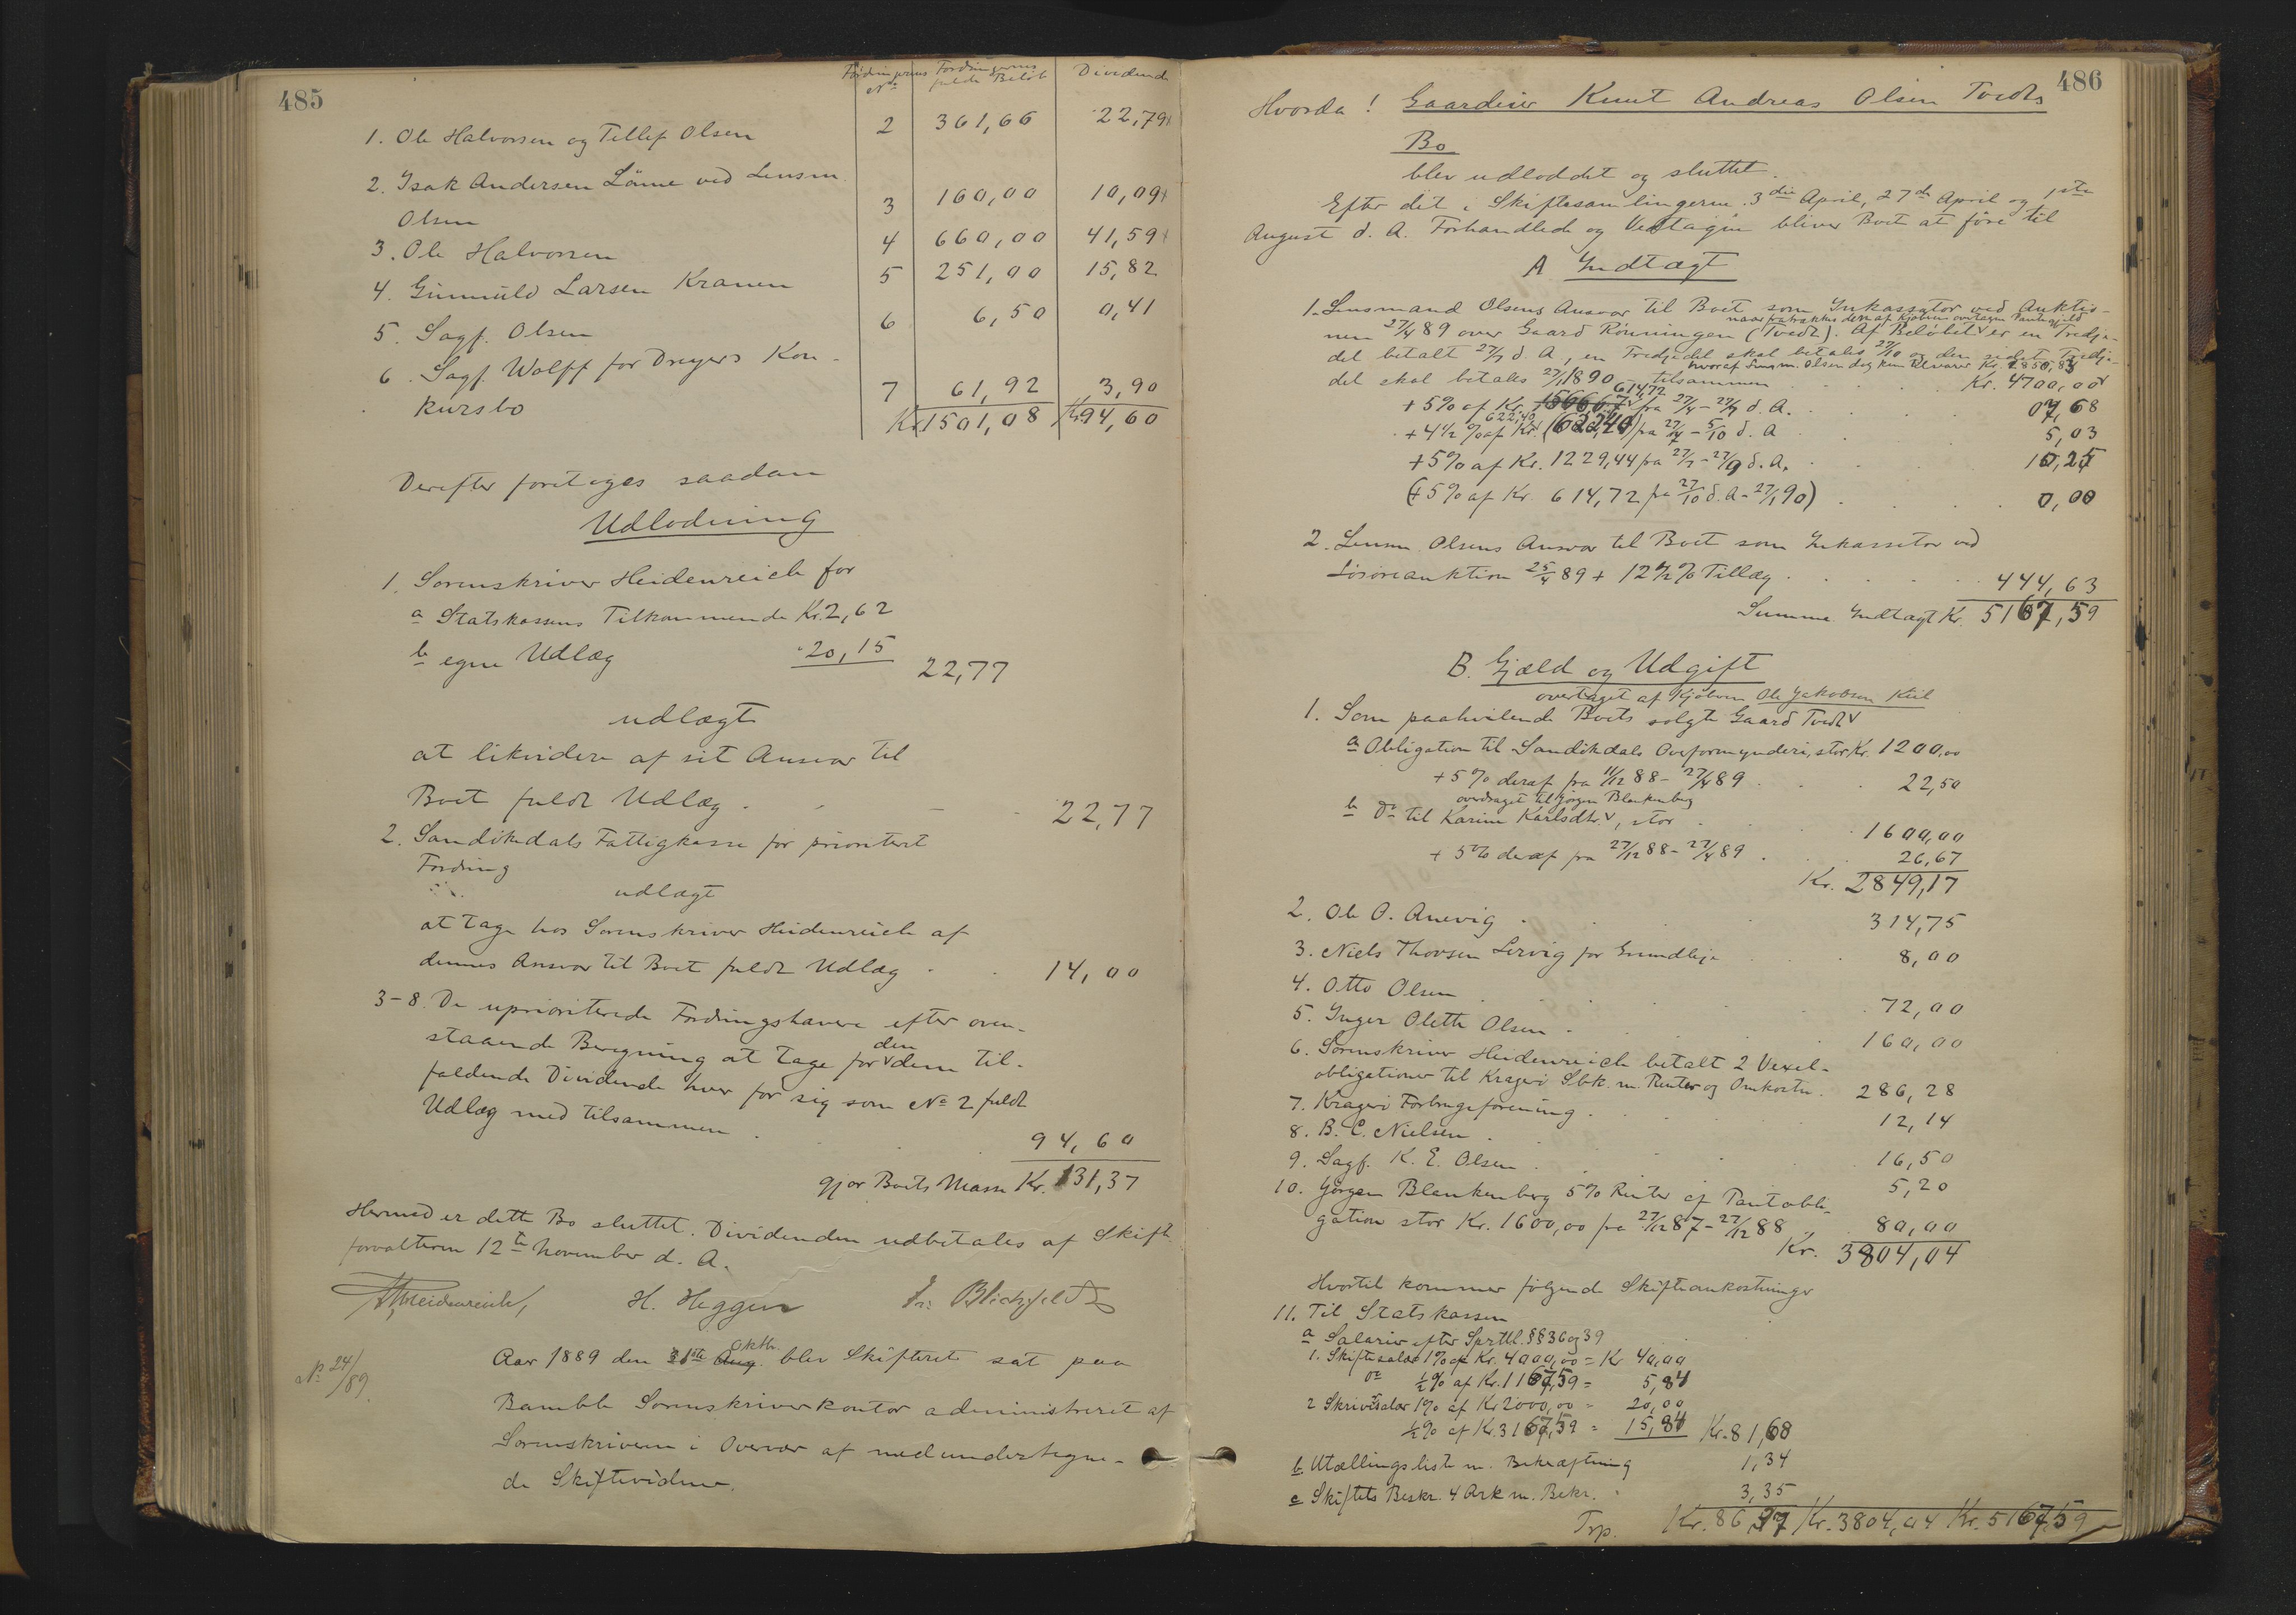 485
Fordringernes No Fordringernes fulde Beløb Dividende
1. Ole Halvorsen og Tellef Olsen 2 361,66 22,79
2. Isak Andersen Lønne ved Lensm.
Olsen 3 160,00 10,09
3. Ole Halvorsen 4 660,00 41,59
4. Gunnuld Larsen Kranen 5 251,00 15,82
5. Sagf. Olsen 6 6,50 0,41
6. Sagf. Wolff for Dreyers Kon-
kursbo 7 61,92 3,90
Kr. 1501,08 Kr. 94,60
Derefter foretoges saadan
Udlodning
1. Sorenskriver Heidenreich for
a Statskassens Tilkommende Kr. 2,62
b egne Udlæg 20,15 22,77
udlægt
at likvidere af sit Ansvar til
Boet fuldt Udlæg 22,77
2. Sandökedals Fattigkasse for prioritert
Fordring
udlagt
at tage hos Sorenskriver Heidenreich af
dennes Ansvar til Boet fuldt Udlæg 14,00
3-8. De uprioriterede Fordringshavere efter oven-
staaende Beregning at tage for den dem til-
faldende Dividende hver for sig som No 2 fuldt
Udlæg med tilsammen 94,60
gjør Boets Masse Kr. 131,37
Hermed er dette Bo sluttet. Dividenden udbetales af Skifte-
forvalteren 12te November d. A.
Heidenreich, H. Heggen Blichfeldt
No 24/89.
Aar 1889 den 31te Aug. Oktbr. blev Skifteret sat paa
Bamble Sorenskriverkontor administreret af
Sorenskriveren i Overvær af medundertegne-
de Skiftevidner.
486
Hvorda! Gaardeier Knut Andreas Olsen Tvedts
Bo
blev udloddet og sluttet.
Efter det i Skiftesamlingerne 3die April, 27de April og 1ste
August d. A. Forhandlede og Vedtagne bliver Boet at føre til
A Indtægt
1. Lensmand Olsens Ansvar til Boet som Inkassator ved Auktio-
nen 27/4 89 over Gaard Rønningen (Tvedt). Af Beløbet naar fratrækkes den af Kjøberen overtagne Pantegjæld er en Tredje-
del betalt 27/7 d. A., en Tredjedel skal betales 27/10 og den sidste Tredje-
del skal betales 27/1 1890 tilsammen hvoraf Lensm. Olsen dog kun tilsvarer Kr. 1850,83 Kr. 4700,00
+ 5% af Kr. 1566,67 614,72 fra 27/4 - 27/7 d. A. 07,68
+ 4 1/2 % af Kr. 622,40 (622,40) fra 27/7 - 5/10 d. A 5,03
+ 5% af Kr. 1229,44 fra 27/7 - 27/9 d. A. 10,25
(+ 5% af Kr. 614,72 fra 27/10 d. A - 27/1 90) 0,00
2. Lensm. Olsens Ansvar til Boet som Inkassator ved
Løsøreauktion 25/4 89 + 12 1/2 % Tillæg 444,63
Summa Indtægt Kr. 5167,59
B. Gjæld og Udgift
overtaget af Kjøberen Ole Jakobsen Kiil
1. Som paahvilende Boets solgte Gaard Tvedt
a Obligation til Sandökedals Overformynderi, stor Kr. 1200,00
+ 5% deraf fra 11/12 88 - 27/4 89 22,50
overdraget til Jørgen Blankenberg
b Do til Karine Karlsdtr., stor 1600,00
+ 5% deraf fra 27/12 88 - 27/4 89 26,67
Kr. 2849,17
2. Ole O. Anevig 314,75
3. Niels Thovsen Lervig for Grundleje 8,00
4. Otto Olsen 72,00
5. Inger Olette Olsen 160,00
6. Sorenskriver Heidenreich betalt 2 Vexel-
obligationer til Kragerø Sbk. m. Renter og Omkostn. 286,28
7. Kragerø Forbrugsforening 12,14
8. B. C. Nielsen 16,50
9. Sagf. K. E. Olsen 5,20
10. Jørgen Blankenberg 5% Renter af Pantobli-
gation stor Kr. 1600,00 fra 27/12 87 - 27/12 88 80,00
Kr. 3804,04
Hvortil kommer følgende Skifteomkostninger
11. Til Statskassen
a Salarier efter Sprtl. §§ 36 og 39
1. Skiftesalær 1% af Kr. 4000,00 = Kr 40,00
Do 1/2 % af Kr. 1167,59 = 5,84
2 Skriversalær 1% af Kr 2000,00 = 20,00
1/2 % af Kr. 3167,59 = 15,84 Kr. 81,68
b Utællingsliste m. Bekræftning 1,34
c Skiftets Beskr. 4 Ark m. Bekr. 3,35
Trp. Kr. 86,37 Kr. 3804,04 Kr. 5167,59